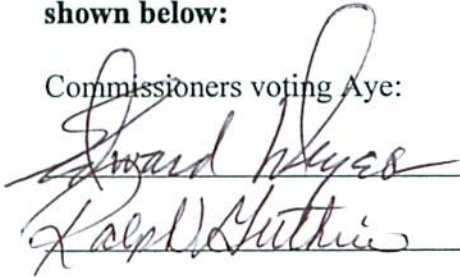 shown below:
Commissioners voting Aye:
Edward
Ralph Guthrie